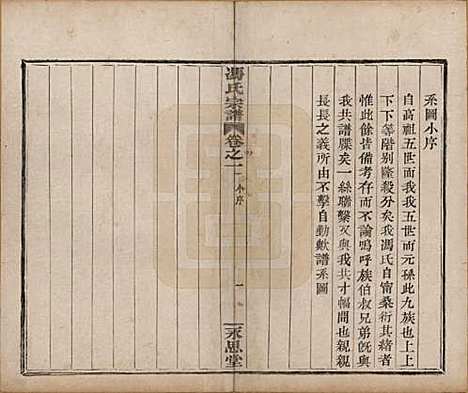 系圖小序
自高祖五世而我我五世而元孫此九族也上上
下下等階別斷殺分矣我馮氏自甯桑衍其緒者
惟此餘皆備考存而不論嗚呼族伯叔兄弟旣與
我共譜牒矣一絲聯繫又與我共才幅間也親親
長長之義所由不擊自動歟譜系圖
馮氏宗譜
卷之一
小序
一
永思堂